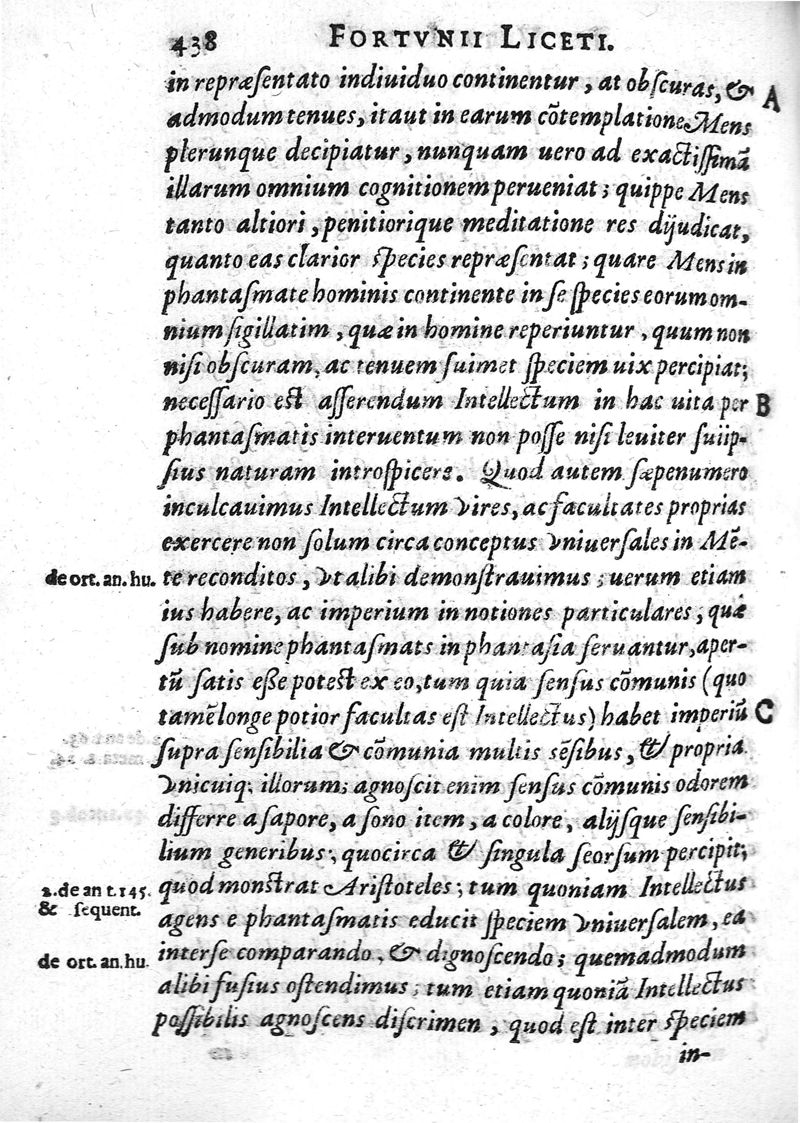 438 FORTVNII LICETI.
in repræſentato indiuiduo continentur, at obſcuras, & A
admodum tenues, itaut in earum cōtemplatione Mens
plerunque decipiatur, nunquam uero ad exactiſſimā
illarum omnium cognitionem perueniat; quippe Mens
tanto altiori, penitiorique meditatione res dijudicat,
quanto eas clarior ſpecies repræſentat; quare Mens in
phantaſmate hominis continente in ſe ſpecies eorum om-
nium ſigillatim, quæ in homine reperiuntur, quum non
niſi obſcuram, ac tenuem ſuimet ſpeciem uix percipiat;
neceſſario est aſſerendum Intellectum in hac uita per B
phantaſmatis interuentum non poſſe niſi leuiter ſuiip-
ſius naturam introſpicere. Quod autem ſæpenumero
inculcauimus Intellectum vires, ac facultates proprias
exercere non ſolum circa conceptus vniuerſales in Mē-
de ort. an. hu. te reconditos, vt alibi demonſtrauimus; uerum etiam
ius habere, ac imperium in notiones particulares, quæ
ſub nomine phantaſmats in phantaſia ſeruantur, aper-
tū ſatis eſſe potest ex eo, tum quia ſenſus cōmunis (quo
tamē longe potior facultas eſt Intellectus) habet imperiū C
ſupra ſenſibilia & cōmunia multis sēſibus, & propria
vnicuiq; illorum; agnoſcit enim ſenſus cōmunis odorem
differre a ſapore, a ſono item, a colore, alijſque ſenſibi-
lium generibus; quocirca & ſingula ſeorſum percipit;
2. de an t. 145. quod monſtrat Ariſtoteles; tum quoniam Intellectus
& ſequent. agens e phantaſmatis educit ſpeciem vniuerſalem, ea
de ort. an. hu. interſe comparando, & dignoſcendo; quemadmodum
alibi fuſius oſtendimus; tum etiam quoniā Intellectus
poſſibilis agnoſcens diſcrimen, quod eſt inter ſpeciem
in-